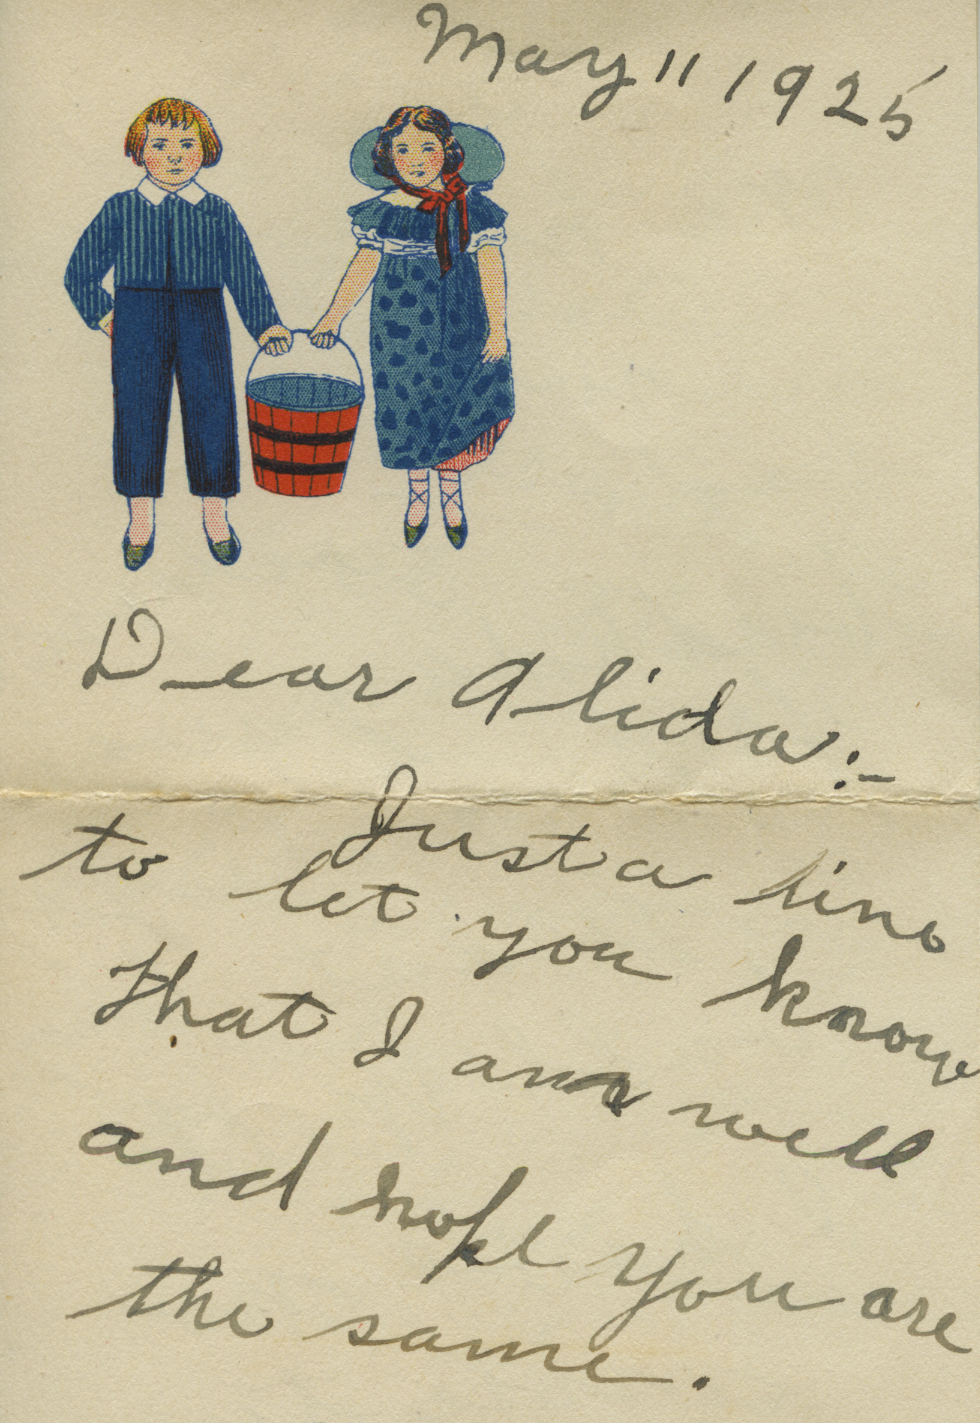 May 11 1925
Dear Alida:-
Just a line
to let you know
that I am well
and hope you are
the same.